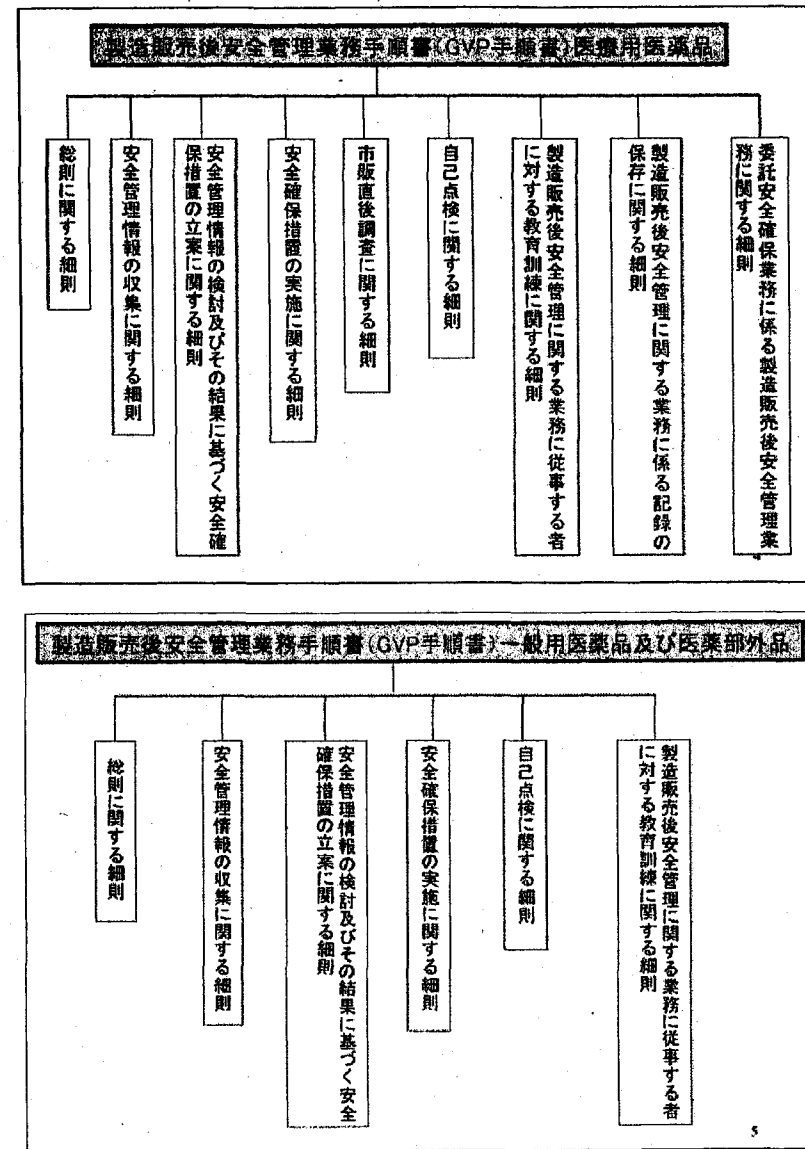 製造販売後安全管理業務手順書(GVP手順書)医療用医薬品
総則に関する細則
安全管理情報の収集に関する細則
安全管理情報の検討及びその結果に基づく安全確
保措置の立案に関する細則
安全確保措置の実施に関する細則
市販直後調査に関する細則
自己点検に関する細則
製造販売後安全管理に関する業務に従事する者
に対する教育訓練に関する細則
製造販売後安全管理に関する業務に係る記録の
保存に関する細則
委託安全確保業務に係る製造販売後安全管理業
務に関する細則
4
製造販売後安全管理業務手順書(GVP手順書)一般用医薬品及び医薬部外品
総則に関する細則
安全管理情報の収集に関する細則
安全管理情報の検討及びその結果に基づく安全
確保措置の立案に関する細則
安全確保措置の実施に関する細則
自己点検に関する細則
製造販売後安全管理に関する業務に従事する者
に対する教育訓練に関する細則
5